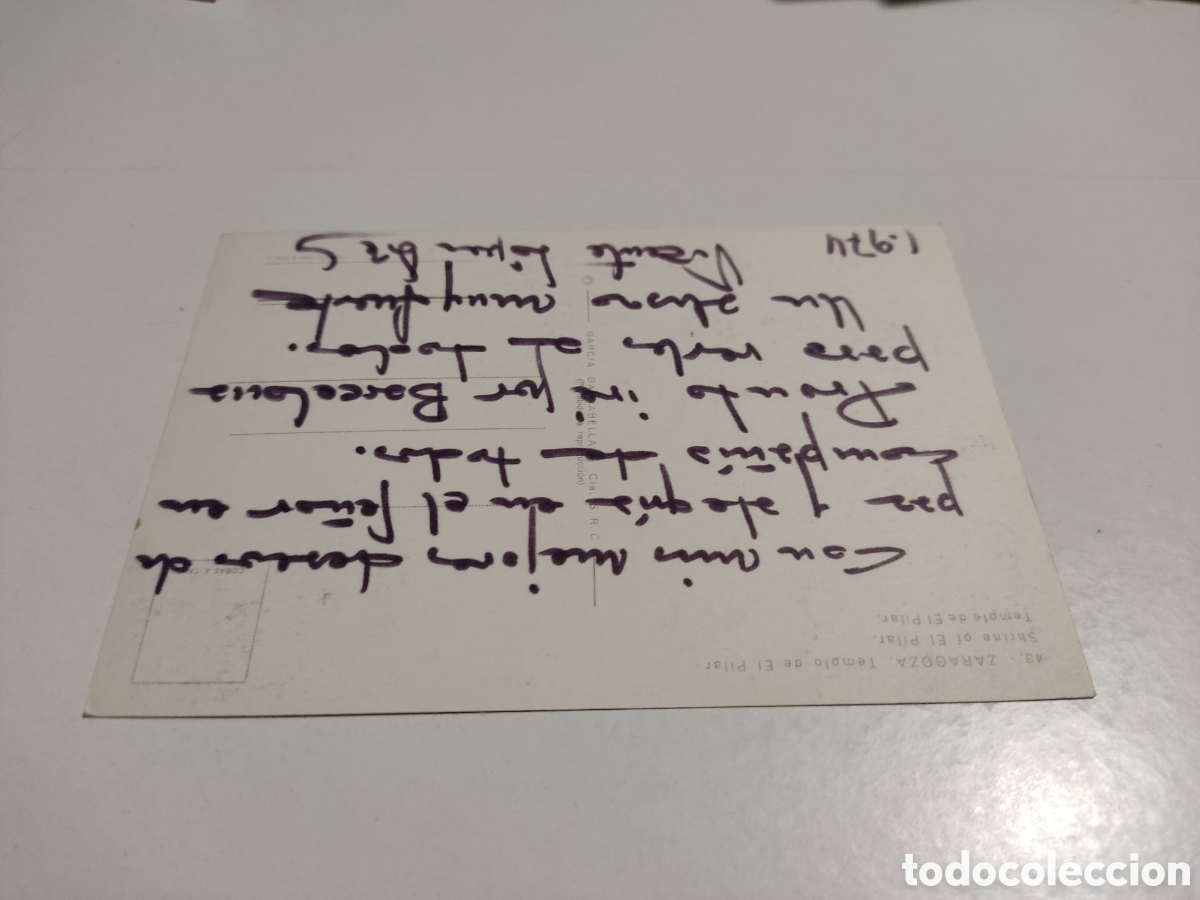 43.- ZARAGOZA. Templo de El Pilar
Shrine of El Pilar.
Temple de El Pilar.
Con mis mejores deseos de
paz y alegría en el Señor en
compañía de todos.
Pronto iré por Barcelona
para verlos a todos.
Un abrazo muy fuerte
Vicente López
1.974
GARCIA GARRABELLA Y Cía. S.R.C.
(Prohibida la reproducción)
todocoleccion